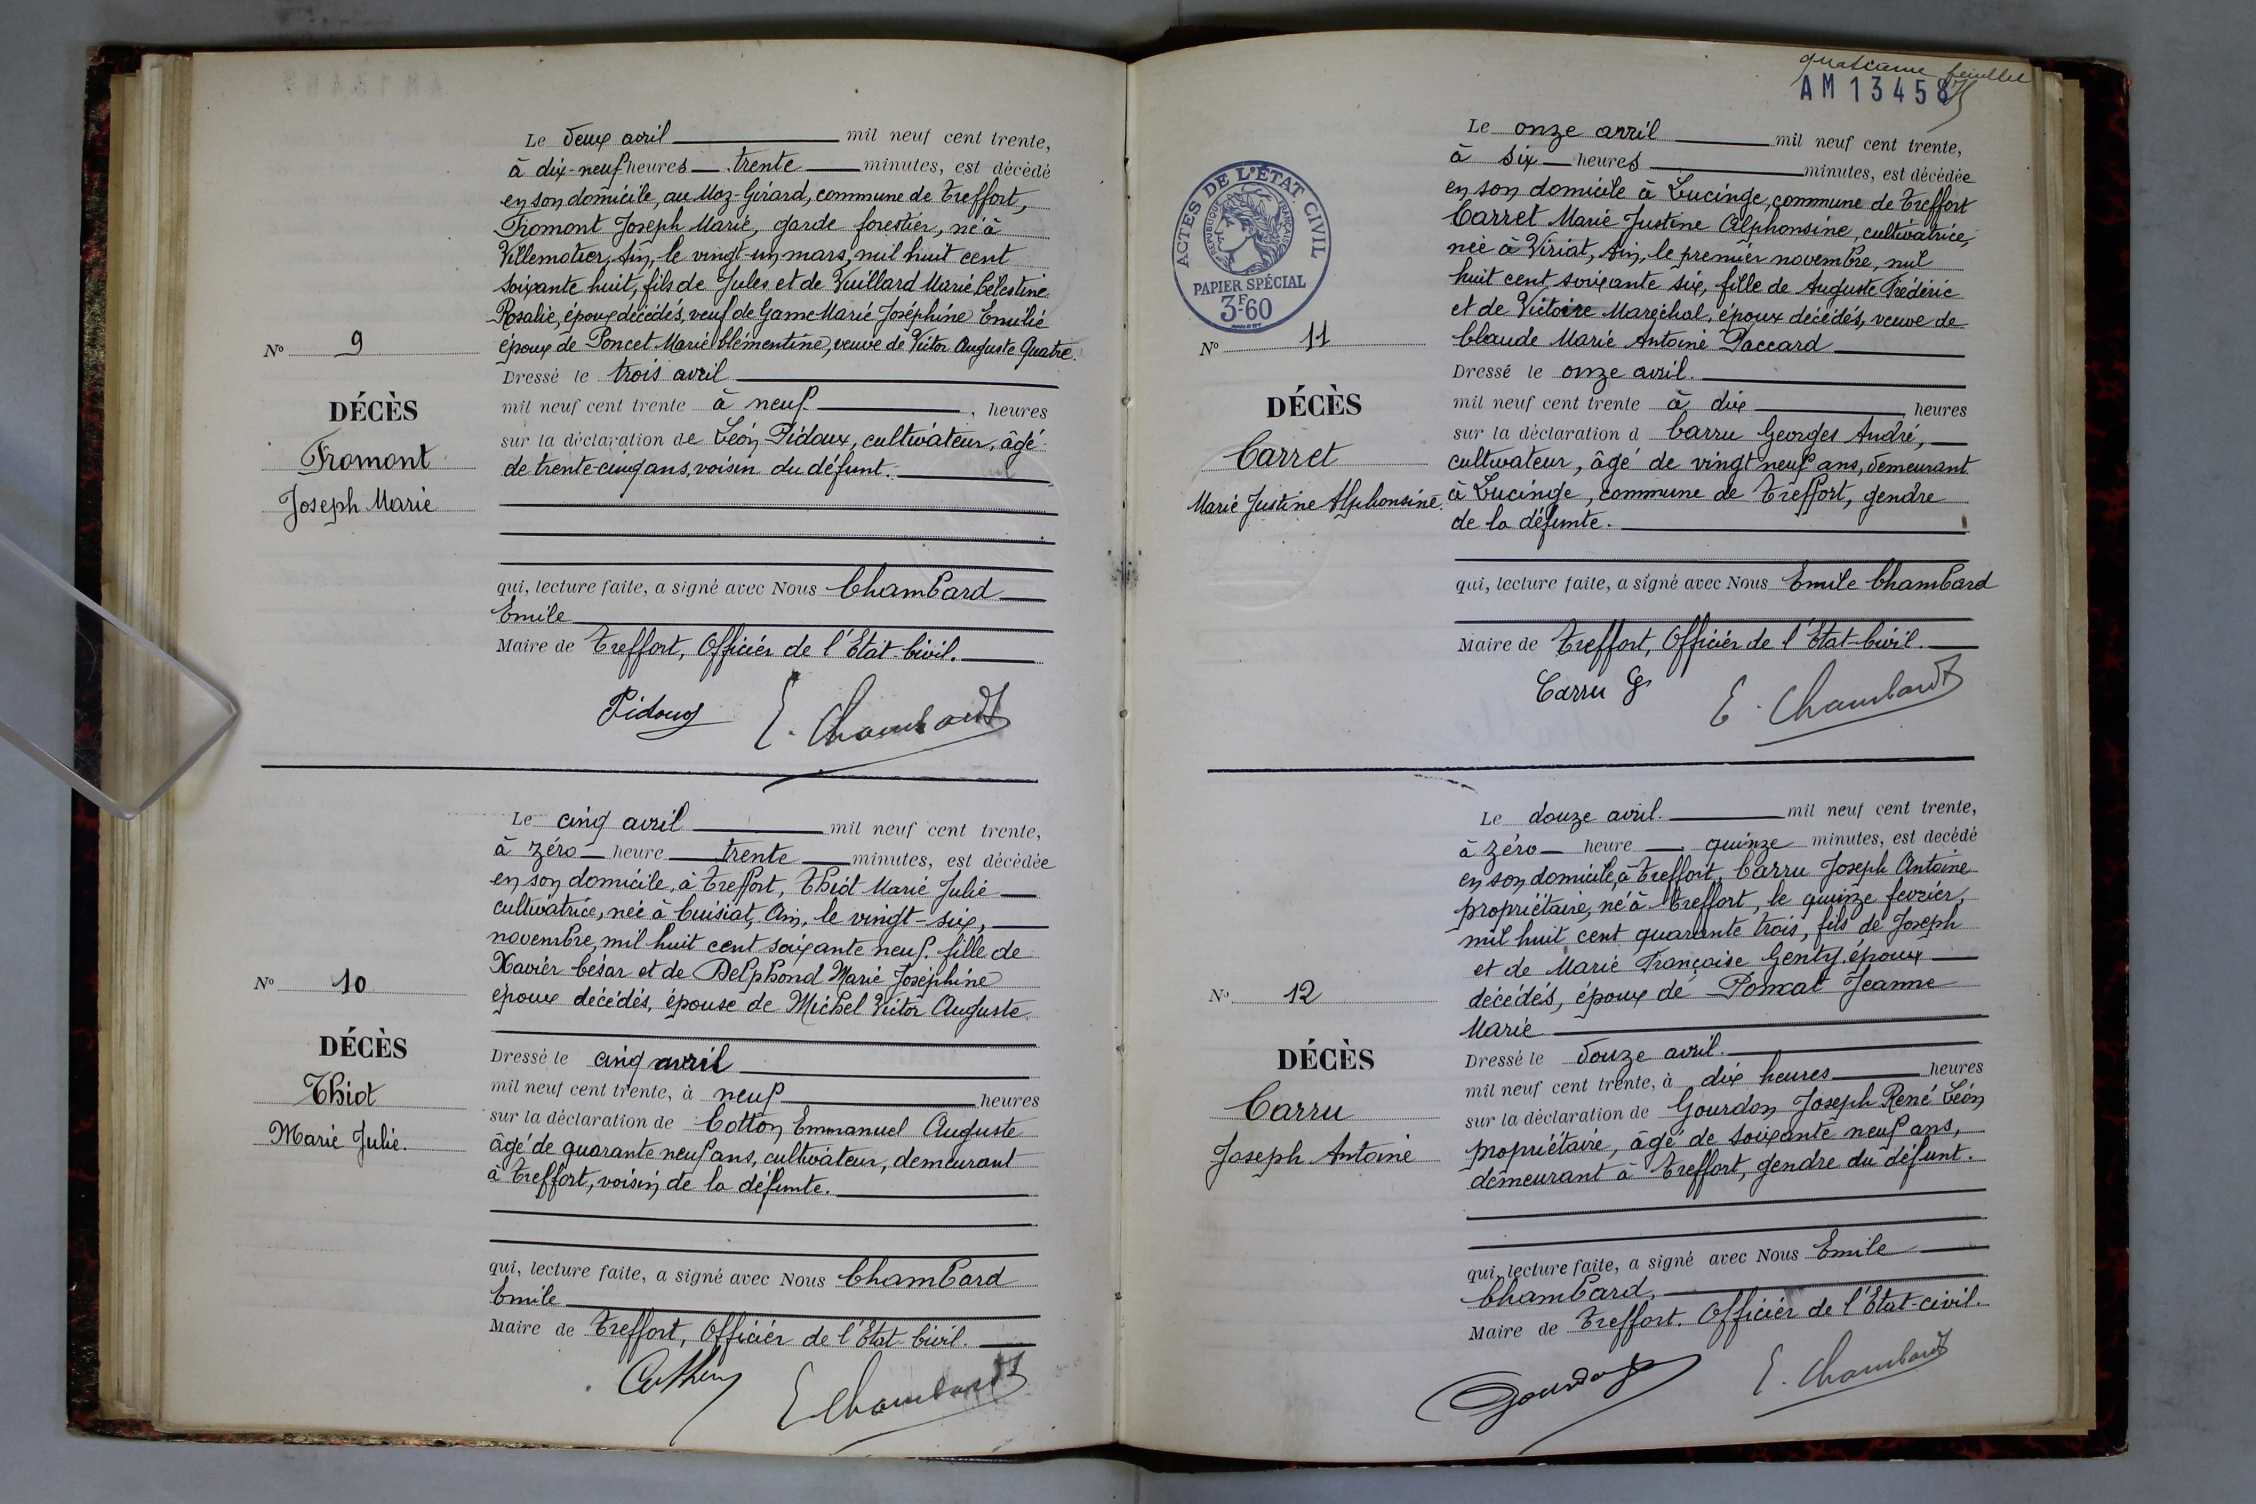 Le deux avril mil neuf cent trente,
à dix-neuf heures trente minutes, est décédé
en son domicile, au Moz-Girard, commune de Treffort,
Fromont Joseph Marie, garde forestier, né à
Villemotier, Ain, le vingt-un mars, mil huit cent
soixante huit, fils de Jules et de Vuillard Marie Célestine
Rosalie, époux décédés, veuf de Game Marie Joséphine Emilie
époux de Poncet Marie Clémentine, veuve de Victor Auguste Quatre.
N° 9
Dressé le trois avril
mil neuf cent trente à neuf, heures
DÉCÈS
sur la déclaration de Léon Pidoux, cultivateur, âgé
Fromont
de trente-cinq ans, voisin du défunt.
Joseph Marie
qui, lecture faite, a signé avec Nous Chambard
Emile
Maire de Treffort, Officier de l'Etat-Civil.
Pidoux E. Chambard
Le cinq avril mil neuf cent trente,
à zéro heure trente minutes, est décédée
en son domicile, à Treffort, Thiot Marie Julie
cultivatrice, née à Cuisiat, Ain, le vingt-six,
novembre, mil huit cent soixante neuf. fille de
Xavier César et de Delphond Marie Joséphine
époux décédés, épouse de Michel Victor Auguste
N° 10
DÉCÈS
Dressé le cinq avril
Thiot
mil neuf cent trente, à neuf heures
sur la déclaration de Cotton Emmanuel Auguste
Marie Julie.
âgé de quarante neuf ans, cultivateur, demeurant
à Treffort, voisin de la défunte.
qui, lecture faite, a signé avec Nous Chambard
Emile
Maire de Treffort, Officier de l'Etat-Civil.
E Chambard
quatrième feuillet
AM 13458
Le onze avril mil neuf cent trente,
à six heures minutes, est décédée
en son domicile à Lucinge, commune de Treffort
Carret Marie Justine Alphonsine, cultivatrice,
née à Viriat, Ain, le premier novembre, mil
huit cent soixante six, fille de Auguste Frédéric
et de Victoire Maréchal, époux décédés, veuve de
Claude Marie Antoine Paccard
ACTES DE L'ÉTAT CIVIL
RÉPUBLIQUE FRANÇAISE
PAPIER SPÉCIAL
3F60
N° 11
Dressé le onze avril.
mil neuf cent trente à dix heures
DÉCÈS
sur la déclaration d Carru Georges André,
Carret
cultivateur, âgé de vingt neuf ans, demeurant
Marie Justine Alphonsine.
à Lucinge, commune de Treffort, gendre
de la défunte.
qui, lecture faite, a signé avec Nous Emile Chambard
Maire de Treffort, Officier de l'Etat-Civil.
Carru G E. Chambard
Le douze avril. mil neuf cent trente,
à zéro heure quinze minutes, est décédé
en son domicile, à Treffort, Carru Joseph Antoine
propriétaire, né à Treffort, le quinze fevrier,
mil huit cent quarante trois, fils de Joseph
et de Marie Françoise Genty, époux
décédés, époux de Poncat Jeanne
Marie
N° 12
DÉCÈS
Dressé le douze avril.
mil neuf cent trente, à dix heures heures
Carru
sur la déclaration de Gourdon Joseph René Léon
Joseph Antoine
propriétaire, âgé de soixante neuf ans,
demeurant à Treffort, gendre du défunt.
qui, lecture faite, a signé avec Nous Emile
Chambard,
Maire de Treffort. Officier de l'Etat-civil.
Gourdon E. Chambard